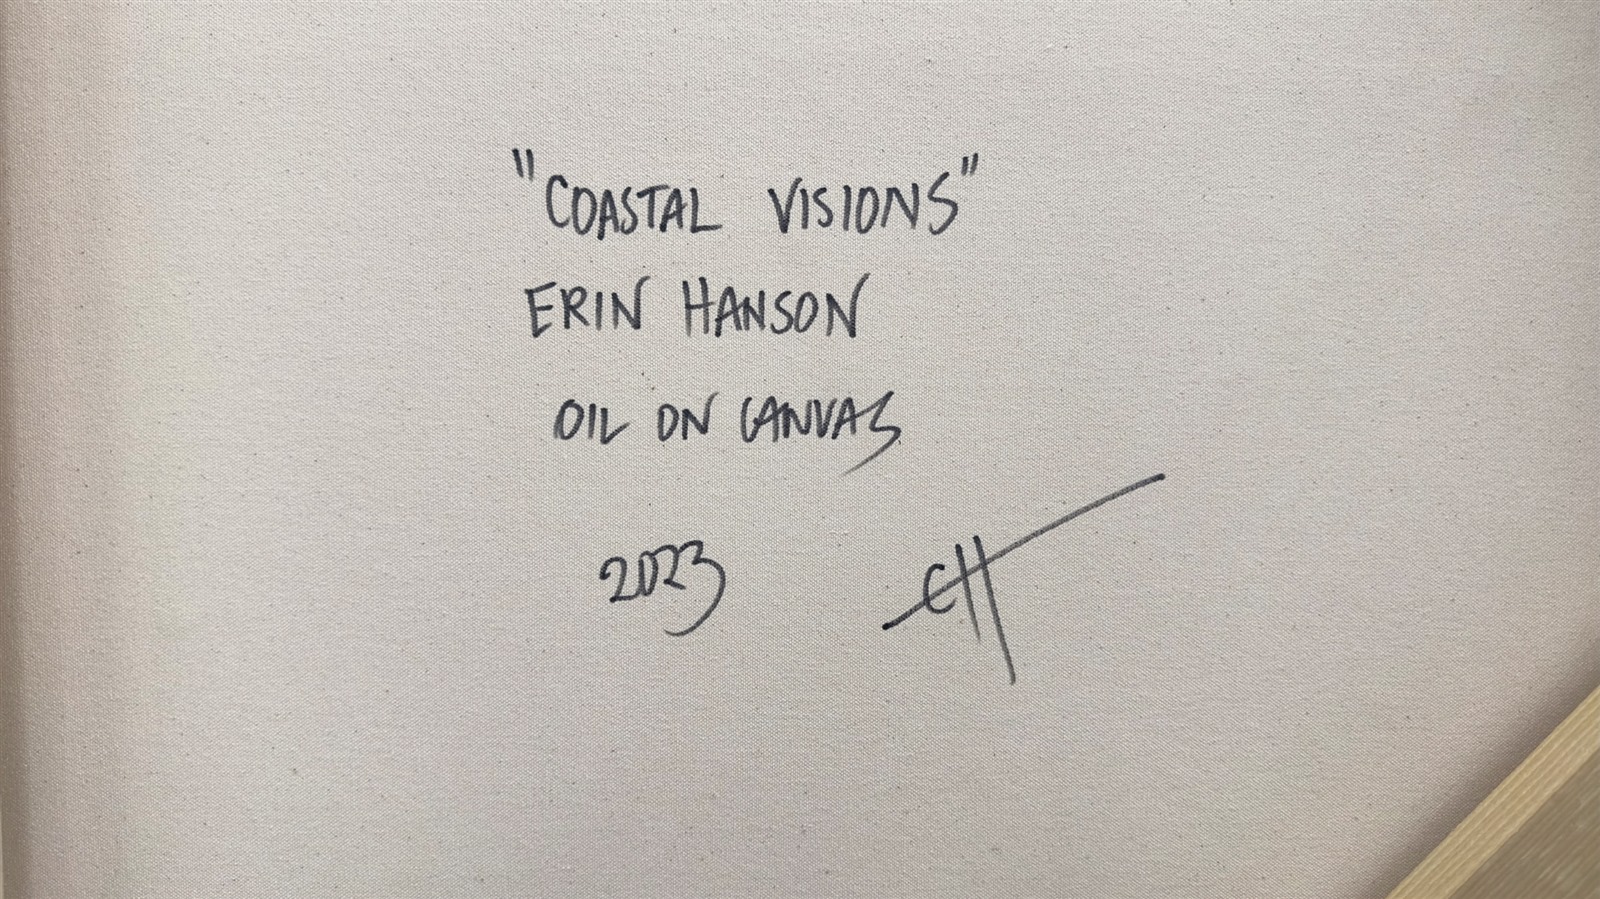 "COASTAL VISIONS"
ERIN HANSON
OIL ON CANVAS
2023 EH